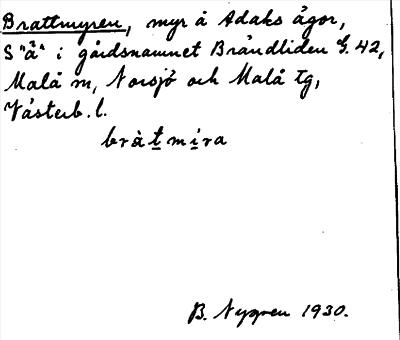 Brattmyren, myr å Adaks ägor,
S "å" i gårdsnamnet Brändliden G. 42,
Malå m, Norsjö och Malå tg,
Västerb. l.
bràtmira
B. Nygren 1930.